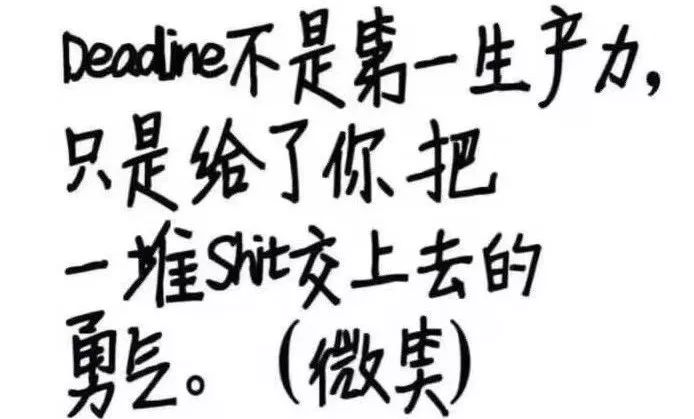 Deadline不是第一生产力,
只是给了你把
一堆Shit交上去的
勇气。(微笑)